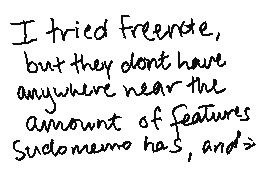 I tried freenote,
but they dont have
anywhere near the
amount of features
Sudomemo has, and→